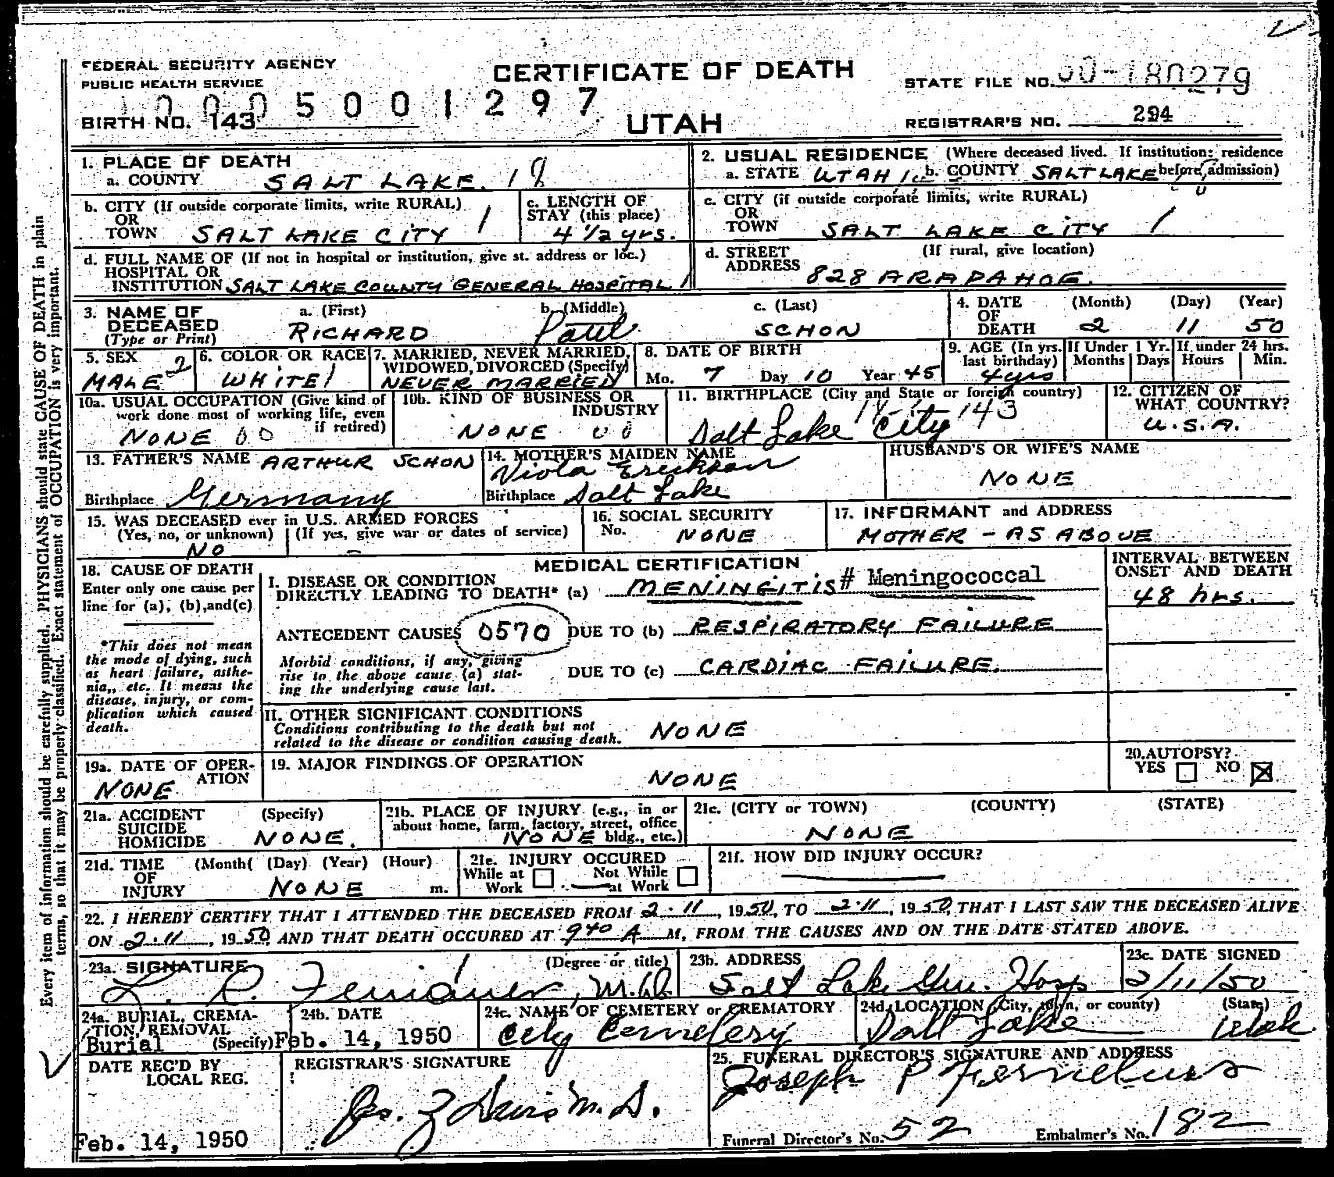 FEDERAL SECURITY AGENCY
PUBLIC HEALTH SERVICE
CERTIFICATE OF DEATH
STATE FILE NO. 50-180279
5001297
BIRTH NO. 143
UTAH
REGISTRAR'S NO. 294
1. PLACE OF DEATH
a. COUNTY SALT LAKE. 18
2. USUAL RESIDENCE (Where deceased lived. If institution: residence before admission)
a. STATE UTAH b. COUNTY SALT LAKE
b. CITY (If outside corporate limits, write RURAL)
OR
TOWN SALT LAKE CITY 1
c. LENGTH OF
STAY (this place)
4 1/2 yrs.
c. CITY (if outside corporate limits, write RURAL)
OR
TOWN SALT LAKE CITY 1
d. FULL NAME OF (If not in hospital or institution, give st. address or loc.)
HOSPITAL OR
INSTITUTION SALT LAKE COUNTY GENERAL HOSPITAL 1
d. STREET (If rural, give location)
ADDRESS 828 ARAPAHOE.
3. NAME OF DECEASED
(Type or Print)
a. (First) b. (Middle) c. (Last)
RICHARD Paul SCHON
4. DATE OF DEATH (Month) (Day) (Year)
2 11 50
5. SEX
MALE 2
6. COLOR OR RACE
WHITE 1
7. MARRIED, NEVER MARRIED,
WIDOWED, DIVORCED (Specify)
NEVER MARRIED
8. DATE OF BIRTH
Mo. 7 Day 10 Year 45
9. AGE (In yrs. last birthday)
4 yrs
If Under 1 Yr. Months Days
If under 24 hrs. Hours Min.
10a. USUAL OCCUPATION (Give kind of
work done most of working life, even
if retired)
NONE 00
10b. KIND OF BUSINESS OR
INDUSTRY
NONE 00
11. BIRTHPLACE (City and State or foreign country)
143
Salt Lake City
12. CITIZEN OF
WHAT COUNTRY?
U.S.A.
13. FATHER'S NAME ARTHUR SCHON
Birthplace Germany
14. MOTHER'S MAIDEN NAME
Viola Erickson
Birthplace Salt Lake
HUSBAND'S OR WIFE'S NAME
NONE
15. WAS DECEASED ever in U.S. ARMED FORCES
(Yes, no, or unknown) (If yes, give war or dates of service)
NO –
16. SOCIAL SECURITY
No. NONE
17. INFORMANT and ADDRESS
MOTHER - AS ABOVE
18. CAUSE OF DEATH
Enter only one cause per
line for (a), (b), and (c)
*This does not mean
the mode of dying, such
as heart failure, asthe-
nia,, etc. It means the
disease, injury, or com-
plication which caused
death.
MEDICAL CERTIFICATION
I. DISEASE OR CONDITION
DIRECTLY LEADING TO DEATH* (a) MENINGITIS # Meningococcal
INTERVAL BETWEEN
ONSET AND DEATH
48 hrs.
ANTECEDENT CAUSES 0570 DUE TO (b) RESPIRATORY FAILURE
Morbid conditions, if any, giving
rise to the above cause (a) stat-
ing the underlying cause last.
DUE TO (c) CARDIAC FAILURE.
II. OTHER SIGNIFICANT CONDITIONS
Conditions contributing to the death but not
related to the disease or condition causing death.
NONE
19a. DATE OF OPER-
ATION
NONE
19. MAJOR FINDINGS OF OPERATION
NONE
20. AUTOPSY?
YES NO X
21a. ACCIDENT (Specify)
SUICIDE
HOMICIDE NONE.
21b. PLACE OF INJURY (e.g., in or
about home, farm, factory, street, office
bldg., etc.)
NONE
21c. (CITY or TOWN) (COUNTY) (STATE)
NONE
21d. TIME (Month( (Day) (Year) (Hour)
OF
INJURY NONE m.
21e. INJURY OCCURED
While at Work Not While at Work
21f. HOW DID INJURY OCCUR?
22. I HEREBY CERTIFY THAT I ATTENDED THE DECEASED FROM 2·11, 1950, TO 2·11, 1950, THAT I LAST SAW THE DECEASED ALIVE
ON 2·11, 1950 AND THAT DEATH OCCURED AT 940 A M., FROM THE CAUSES AND ON THE DATE STATED ABOVE.
23a. SIGNATURE (Degree or title)
M.D.
23b. ADDRESS
Salt Lake Gen. Hosp
23c. DATE SIGNED
2/11/50
24a. BURIAL, CREMA-
TION, REMOVAL
Burial (Specify)
24b. DATE
Feb. 14, 1950
24c. NAME OF CEMETERY or CREMATORY
City Cemetery
24d. LOCATION (City, town, or county) (State)
Salt Lake Utah
DATE REC'D BY
LOCAL REG.
Feb. 14, 1950
REGISTRAR'S SIGNATURE
M.D.
25. FUNERAL DIRECTOR'S SIGNATURE AND ADDRESS
Joseph P Fernelius
Funeral Director's No. 52 Embalmer's No. 182
Every item of information should be carefully supplied. PHYSICIANS should state CAUSE OF DEATH in plain
terms, so that it may be properly classified. Exact statement of OCCUPATION is very important.